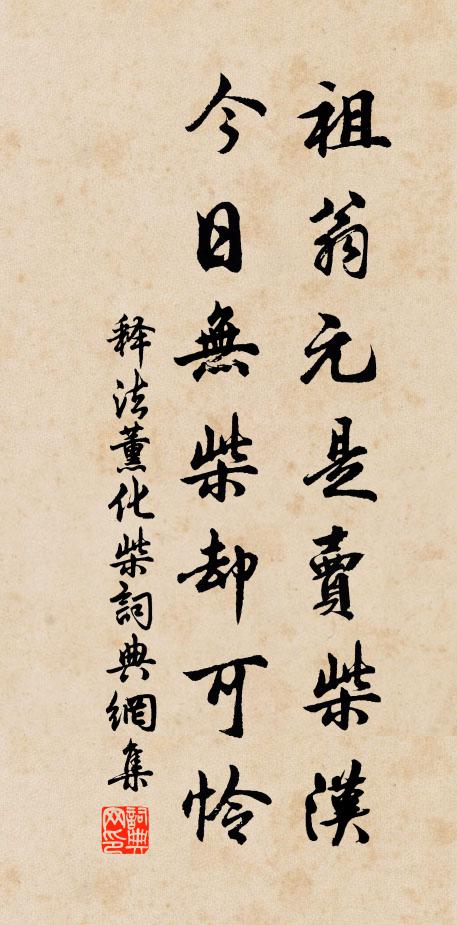 祖翁元是賣柴漢
今日無柴却可怜
释法薰化柴詞典網集
詞典网印